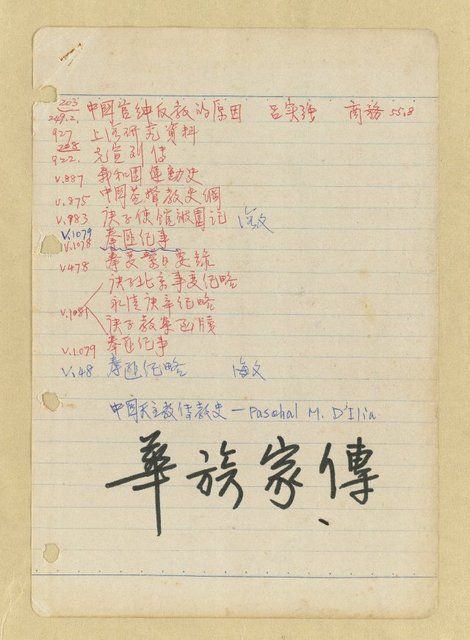 203
249.2. 中國官紳反教的原因 呂实強 商務 55.8
927 上海研究資料
208
922. 先宣列传
V.887 義和团運動史
V.875 中國基督教史綱
V.983 庚子使館被圍記 海文
V.1079
V.1078 拳匪纪事
V.478 拳变系日要錄
庚子北京事变纪略
V.1081 永清庚辛纪略
庚子教案函牘
V.1079 拳匪纪事
V.48 拳匪纪略 海文
中國天主教傳教史 — Paschal M. D'Elia
華族家傳